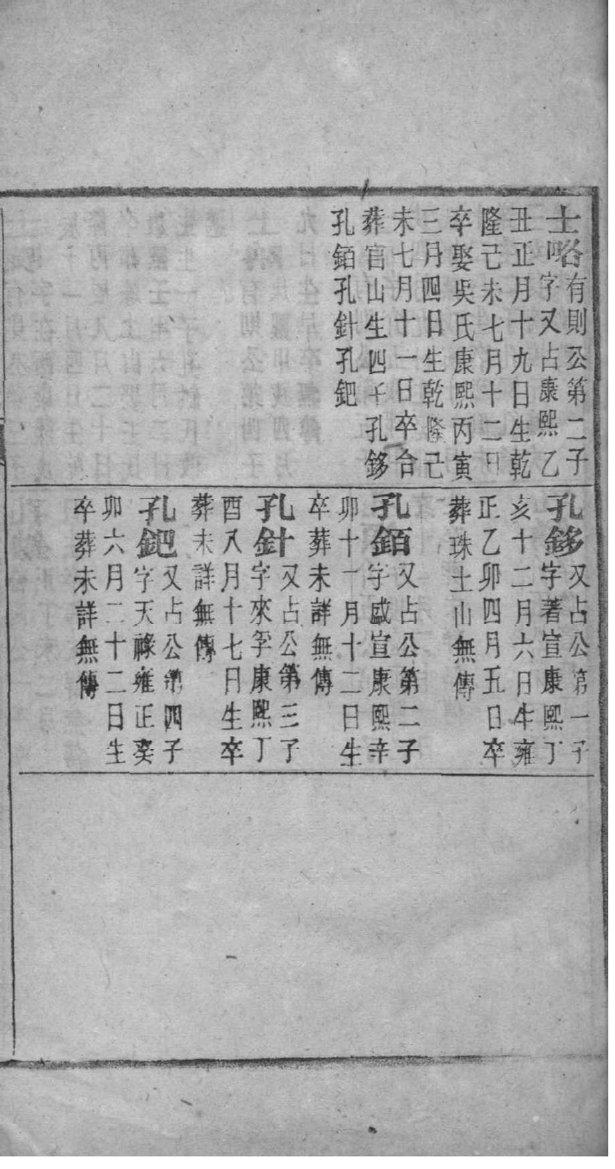 士咯有則公第二子
字又占康熙乙
丑正月十九日生乾
隆己未七月十二日
卒娶吳氏康熙丙寅
三月四日生乾隆己
未七月十一日卒合
葬官山生四子孔鉹
孔銆孔針孔鈀
孔鉹又占公第一子
字著宣康熙丁
亥十二月六日生雍
正乙卯四月五日卒
葬珠土山無傳
孔銆又占公第二子
字盛宣康熙辛
卯十一月十二日生
卒葬未詳無傳
孔針又占公第三子
字來孚康熙丁
酉八月十七日生卒
葬未詳無傳
孔鈀又占公第四子
字天祿雍正癸
卯六月二十二日生
卒葬未詳無傳